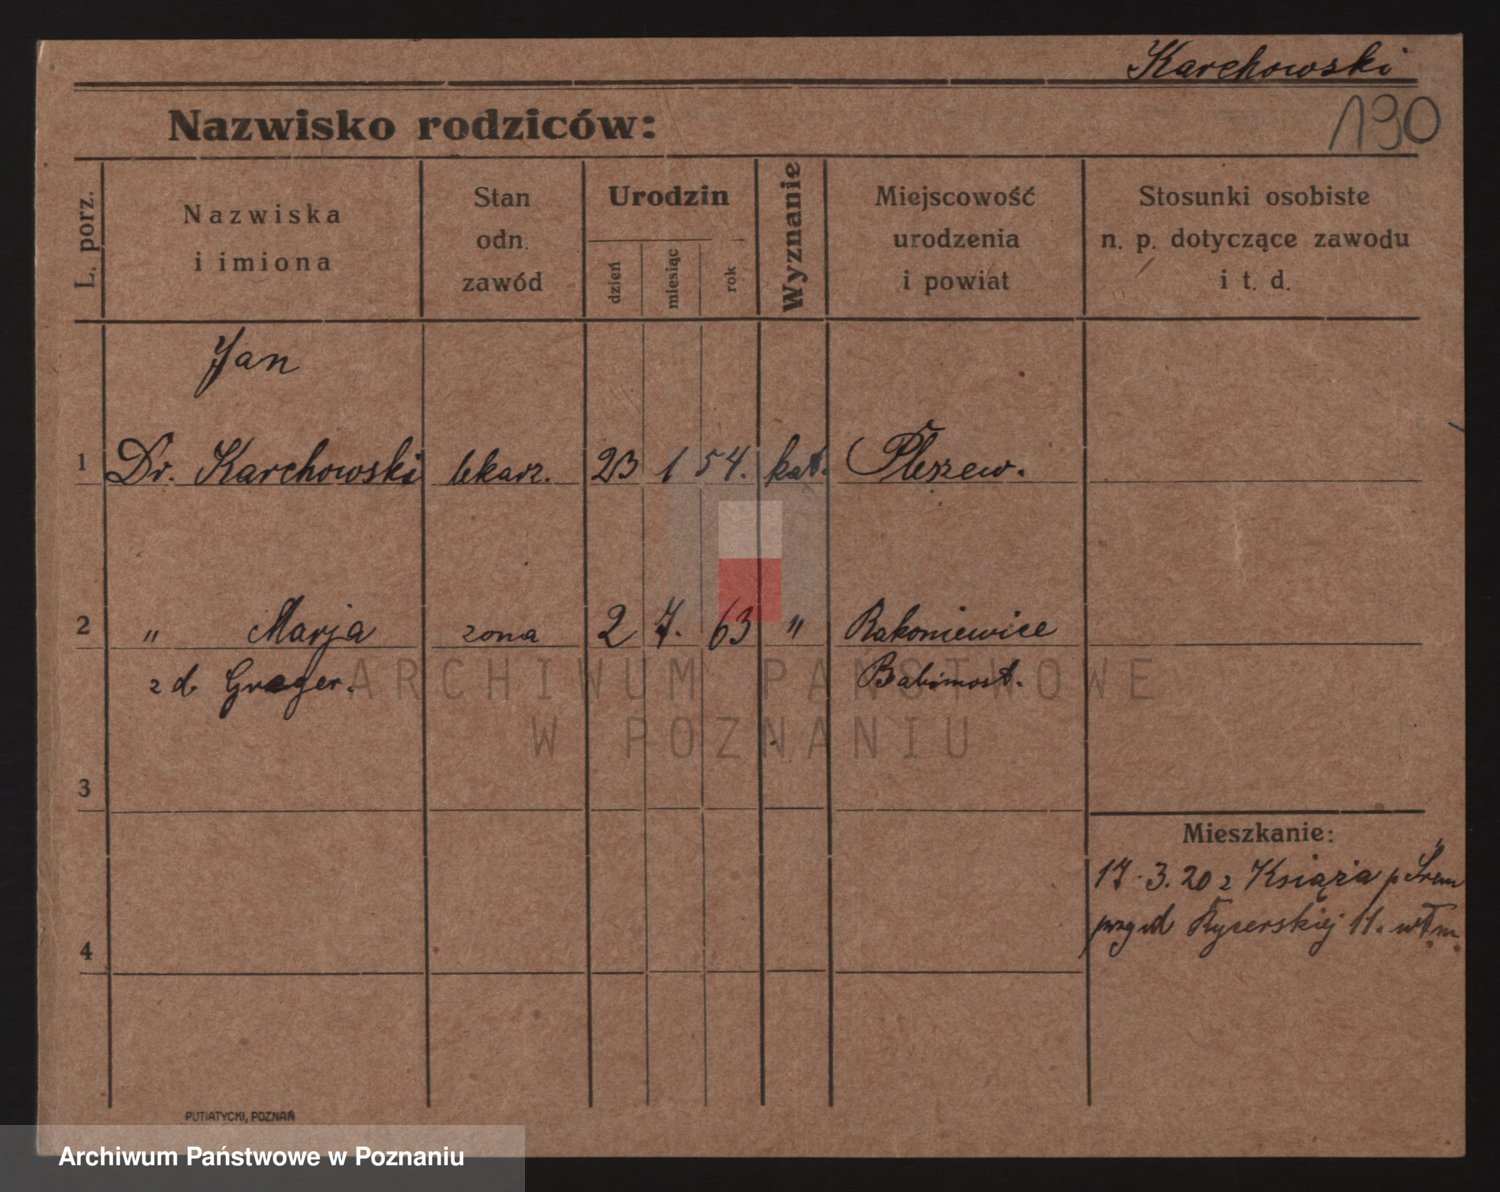 Karchowski
190
Nazwisko rodziców:
L. porz.
Nazwiska
i imiona
Stan
odn.
zawód
Urodzin
dzień
miesiąc
rok
Wyznanie
Miejscowość
urodzenia
i powiat
Stosunki osobiste
n. p. dotyczące zawodu
i t. d.
Jan
1 Dr. Karchowski lekarz. 23 1 54. kat. Pleszew.
2 " Marja zona 2 7. 63 " Rakoniewice
z d. Graeger. Babimost.
ARCHIWUM PAŃSTWOWE
W POZNANIU
3
Mieszkanie:
17.3.20 z Książa p Śrem
Rycerskiej 11.
4
PUTIATYCKI, POZNAŃ
Archiwum Państwowe w Poznaniu